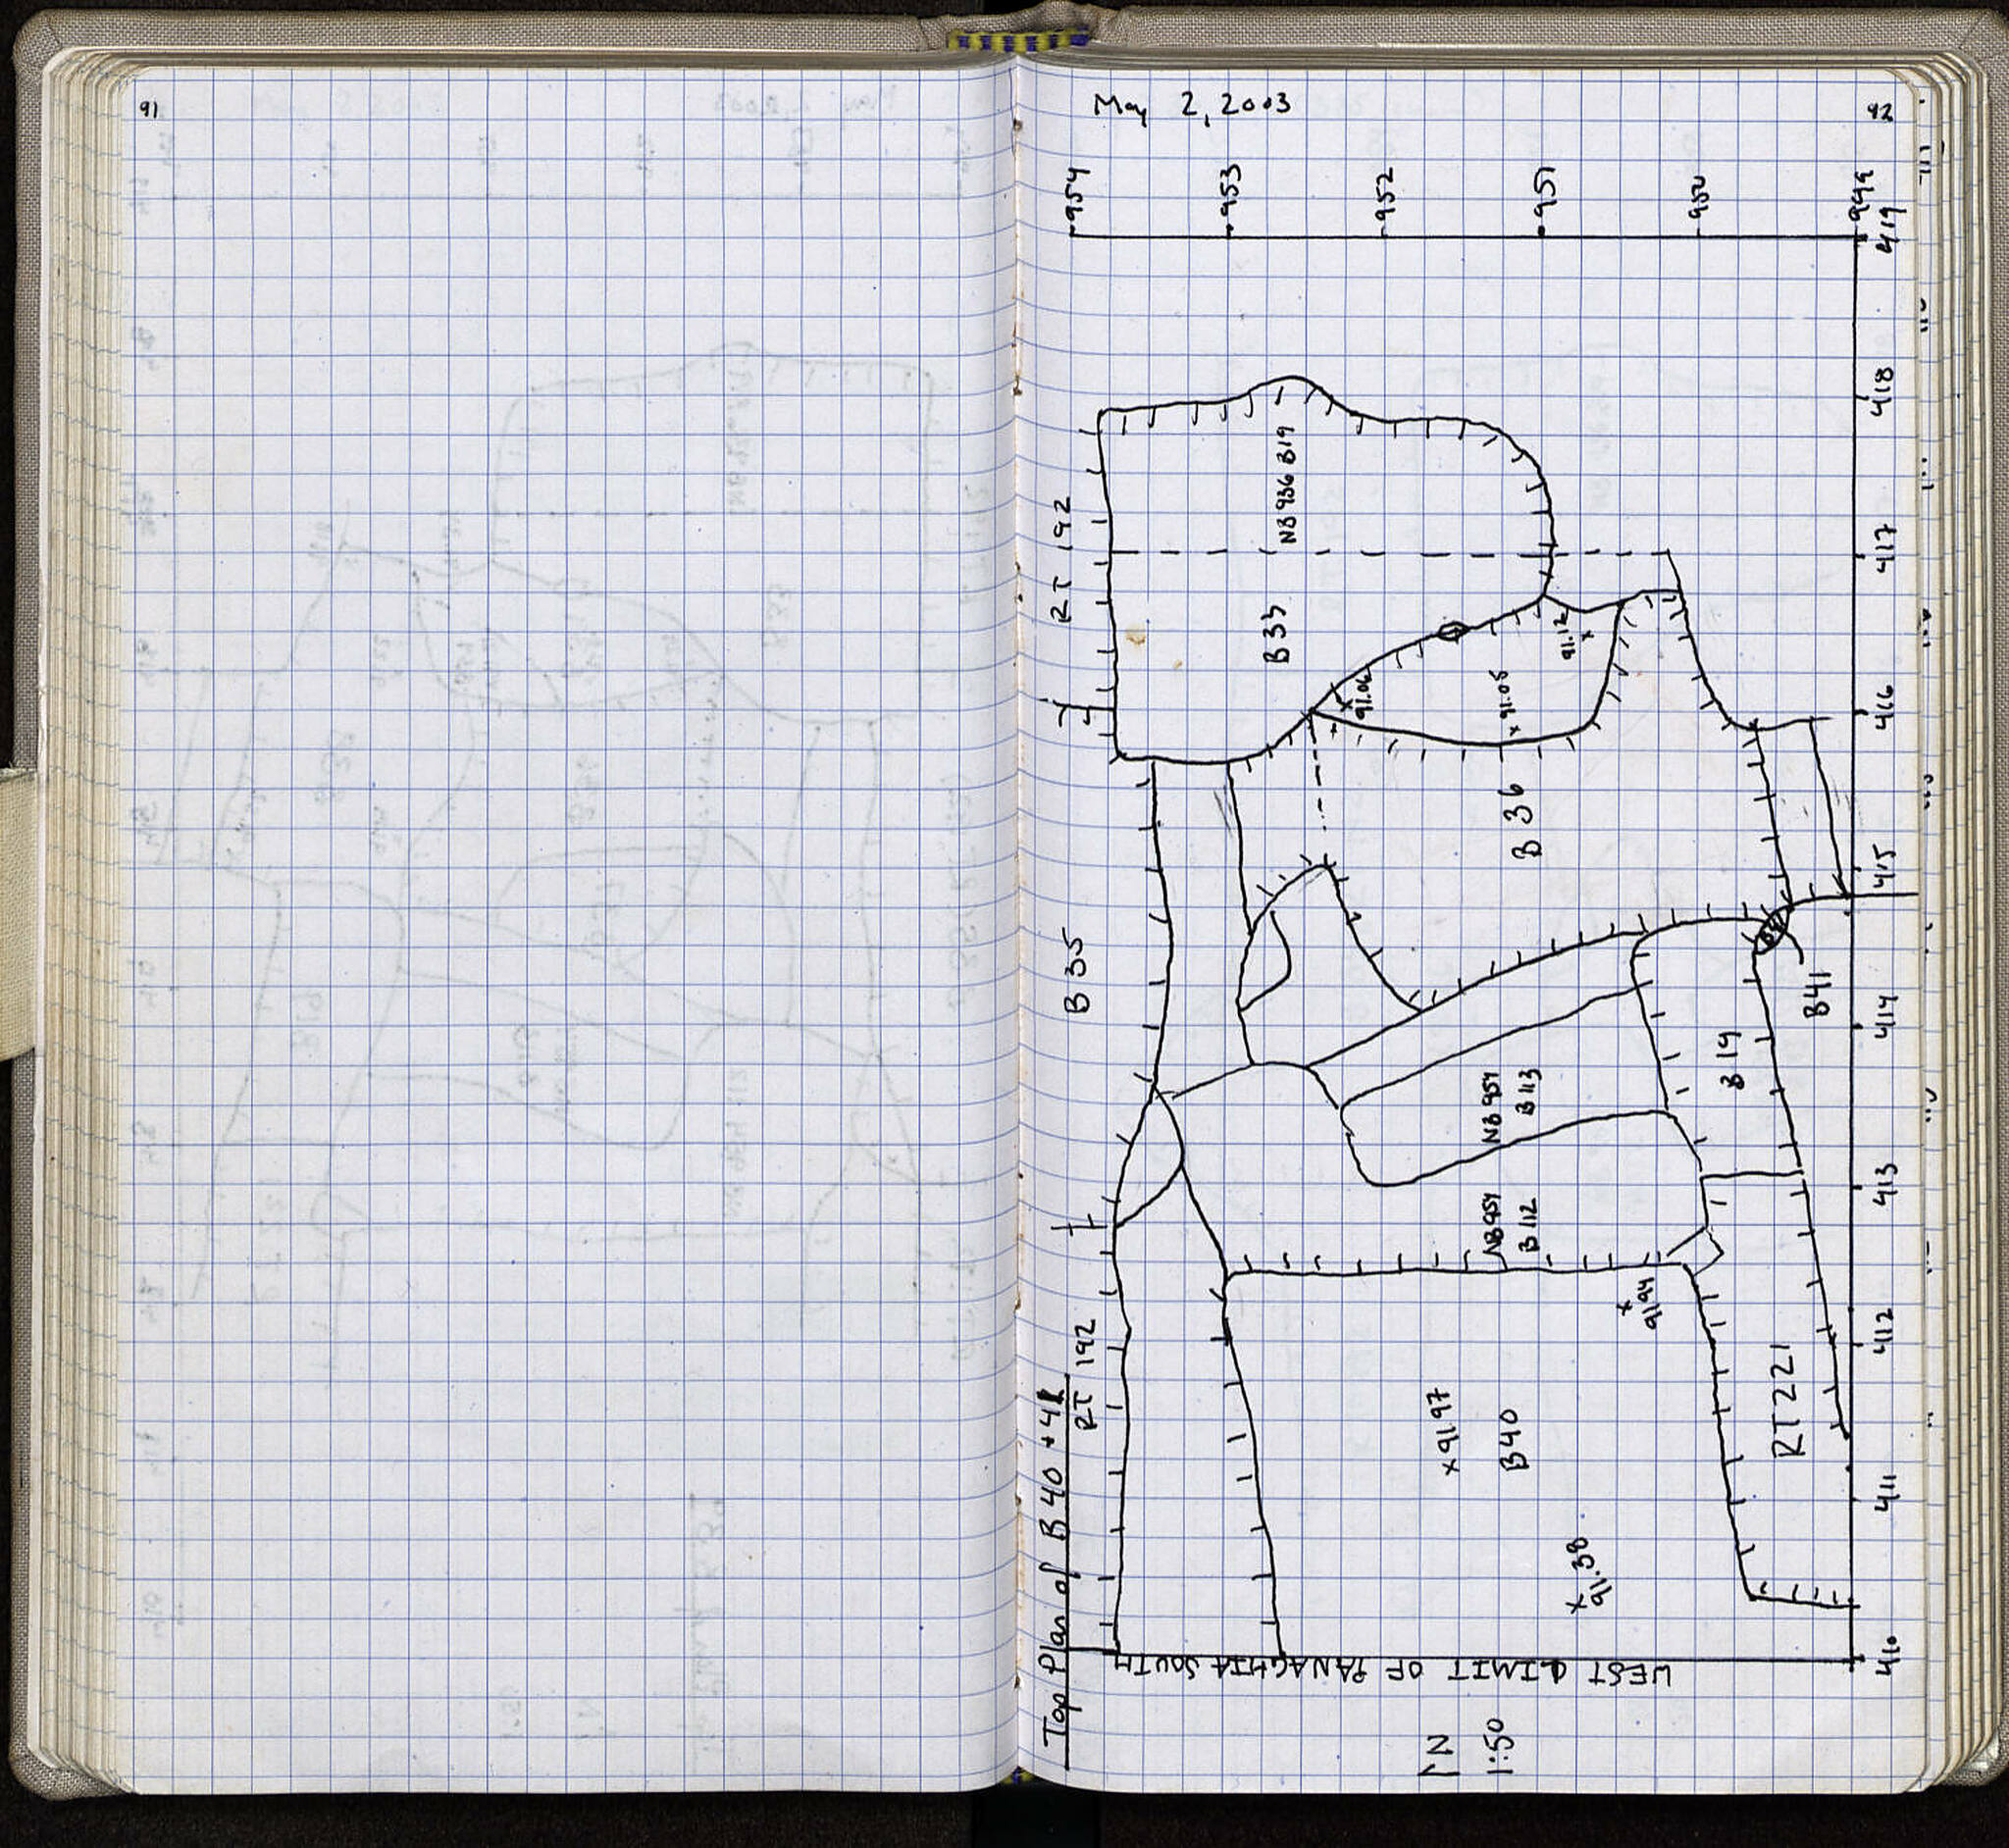 91
May 2, 2003
92
954
953
952
951
950
949
419
418
417
416
415
414
413
412
411
410
Top Plan of B 40 + 41
RT 192
B 35
RT 192
NB 936 B19
B 33
91.06
91.05
91.12
B 36
B41
B 19
NB 954
B 113
NB 954
B 112
91.94
x 91.97
B40
x
91.38
RT 221
WEST LIMIT OF PANAGHIA SOUTH
N
1:50